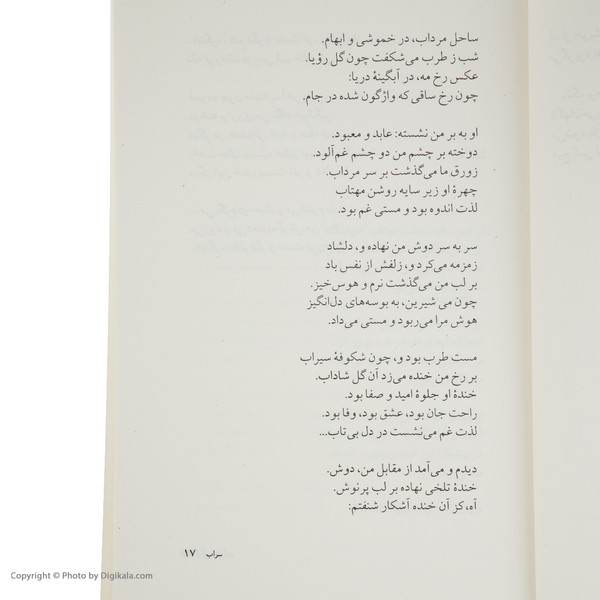 ساحل مرداب، در خموشی و ابهام.
شب ز طرب می‌شکفت چون گل رؤیا.
عکس رخ مه، در آبگینهٔ دریا:
چون رخ ساقی که واژگون شده در جام.
او به بر من نشسته: عابد و معبود.
دوخته بر چشم من دو چشم غم‌آلود.
زورق ما می‌گذشت بر سر مرداب.
چهرهٔ او زیر سایه روشن مهتاب
لذت اندوه بود و مستی غم بود.
سر به سر دوش من نهاده و، دلشاد
زمزمه می‌کرد و، زلفش از نفس باد
بر لب من می‌گذشت نرم و هوس‌خیز.
چون می شیرین، به بوسه‌های دل‌انگیز
هوش مرا می‌ربود و مستی می‌داد.
مست طرب بود و، چون شکوفهٔ سیراب
بر رخ من خنده می‌زد آن گل شاداب.
خندهٔ او جلوهٔ امید و صفا بود.
راحت جان بود، عشق بود، وفا بود.
لذت غم می‌نشست در دل بی‌تاب...
دیدم و می‌آمد از مقابل من، دوش.
خندهٔ تلخی نهاده بر لب پرنوش.
آه، کز آن خنده آشکار شنفتم:
سراب ۱۷
Copyright © Photo by Digikala.com